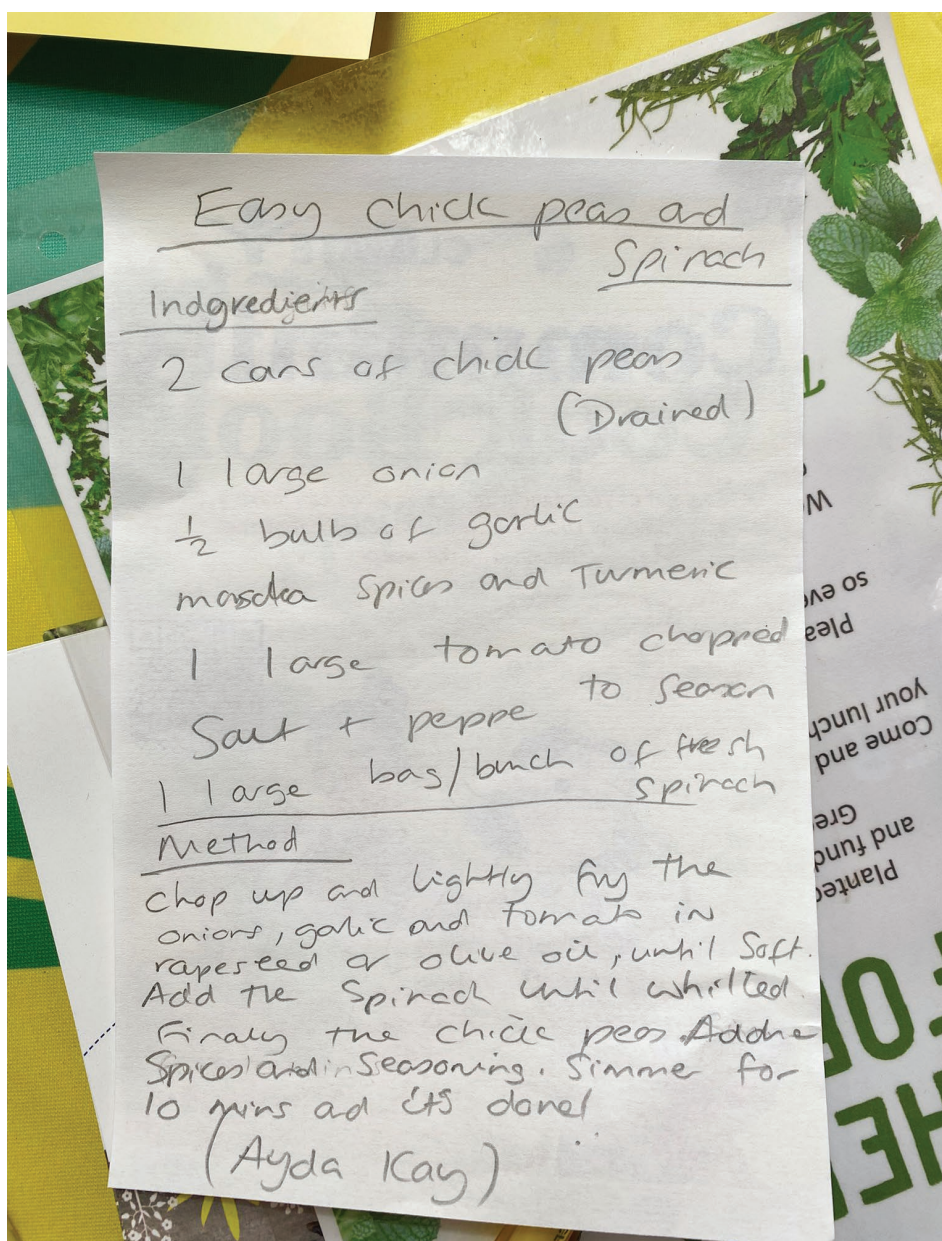 Easy chick peas and
Spinach
Indgredients
2 cans of chick peas
(Drained)
1 large onion
1/2 bulb of garlic
masala Spices and Turmeric
1 large tomato chopped
Salt + peppe to season
1 large bag/bunch of fresh
Spinach
Method
chop up and lightly fry the
onions, garlic and tomato in
rapeseed or olive oil, until Soft.
Add the Spinach until whilted.
Finaly the chick peas. Add the
Spices and in Seasoning. Simmer for
10 mins ad its done!
(Ayda Kay)
so eve
Plea
your lunch
Come and
Gre
and fund
Planted